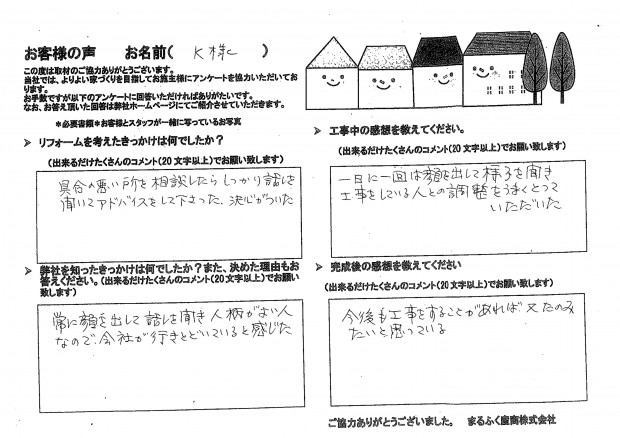 お客様の声　お名前（ K様 ）
この度は取材のご協力ありがとうございます。
当社では、よりよい家づくりを目指してお施主様にアンケートを協力いただいており
ます。
お手数ですが以下のアンケートに回答いただければありがたいです。
なお、お答え頂いた回答は弊社ホームページにてご紹介させていただきます。
＊必要書類＊お客様とスタッフが一緒に写っているお写真
➢ リフォームを考えたきっかけは何でしたか？
（出来るだけたくさんのコメント（20文字以上）でお願い致します）
具合の悪い所を相談したらしっかり話しを
聞いてアドバイスをして下さった、決心がついた
➢ 弊社を知ったきっかけは何でしたか？また、決めた理由もお
答えください。（出来るだけたくさんのコメント（20文字以上）でお願
い致します）
常に顔を出して話しを聞き人柄がよい人
なので、会社が行きとどいていると感じた
➢ 工事中の感想を教えてください。
（出来るだけたくさんのコメント（20文字以上）でお願い致します）
一日に一回は顔を出して様子を聞き
工事をしている人との調整をうまくとって
いただいた
➢ 完成後の感想を教えてください
（出来るだけたくさんのコメント（20文字以上）でお願い致します）
今後も工事をすることがあれば又たのみ
たいと思っている
ご協力ありがとうございました。　まるふく産商株式会社